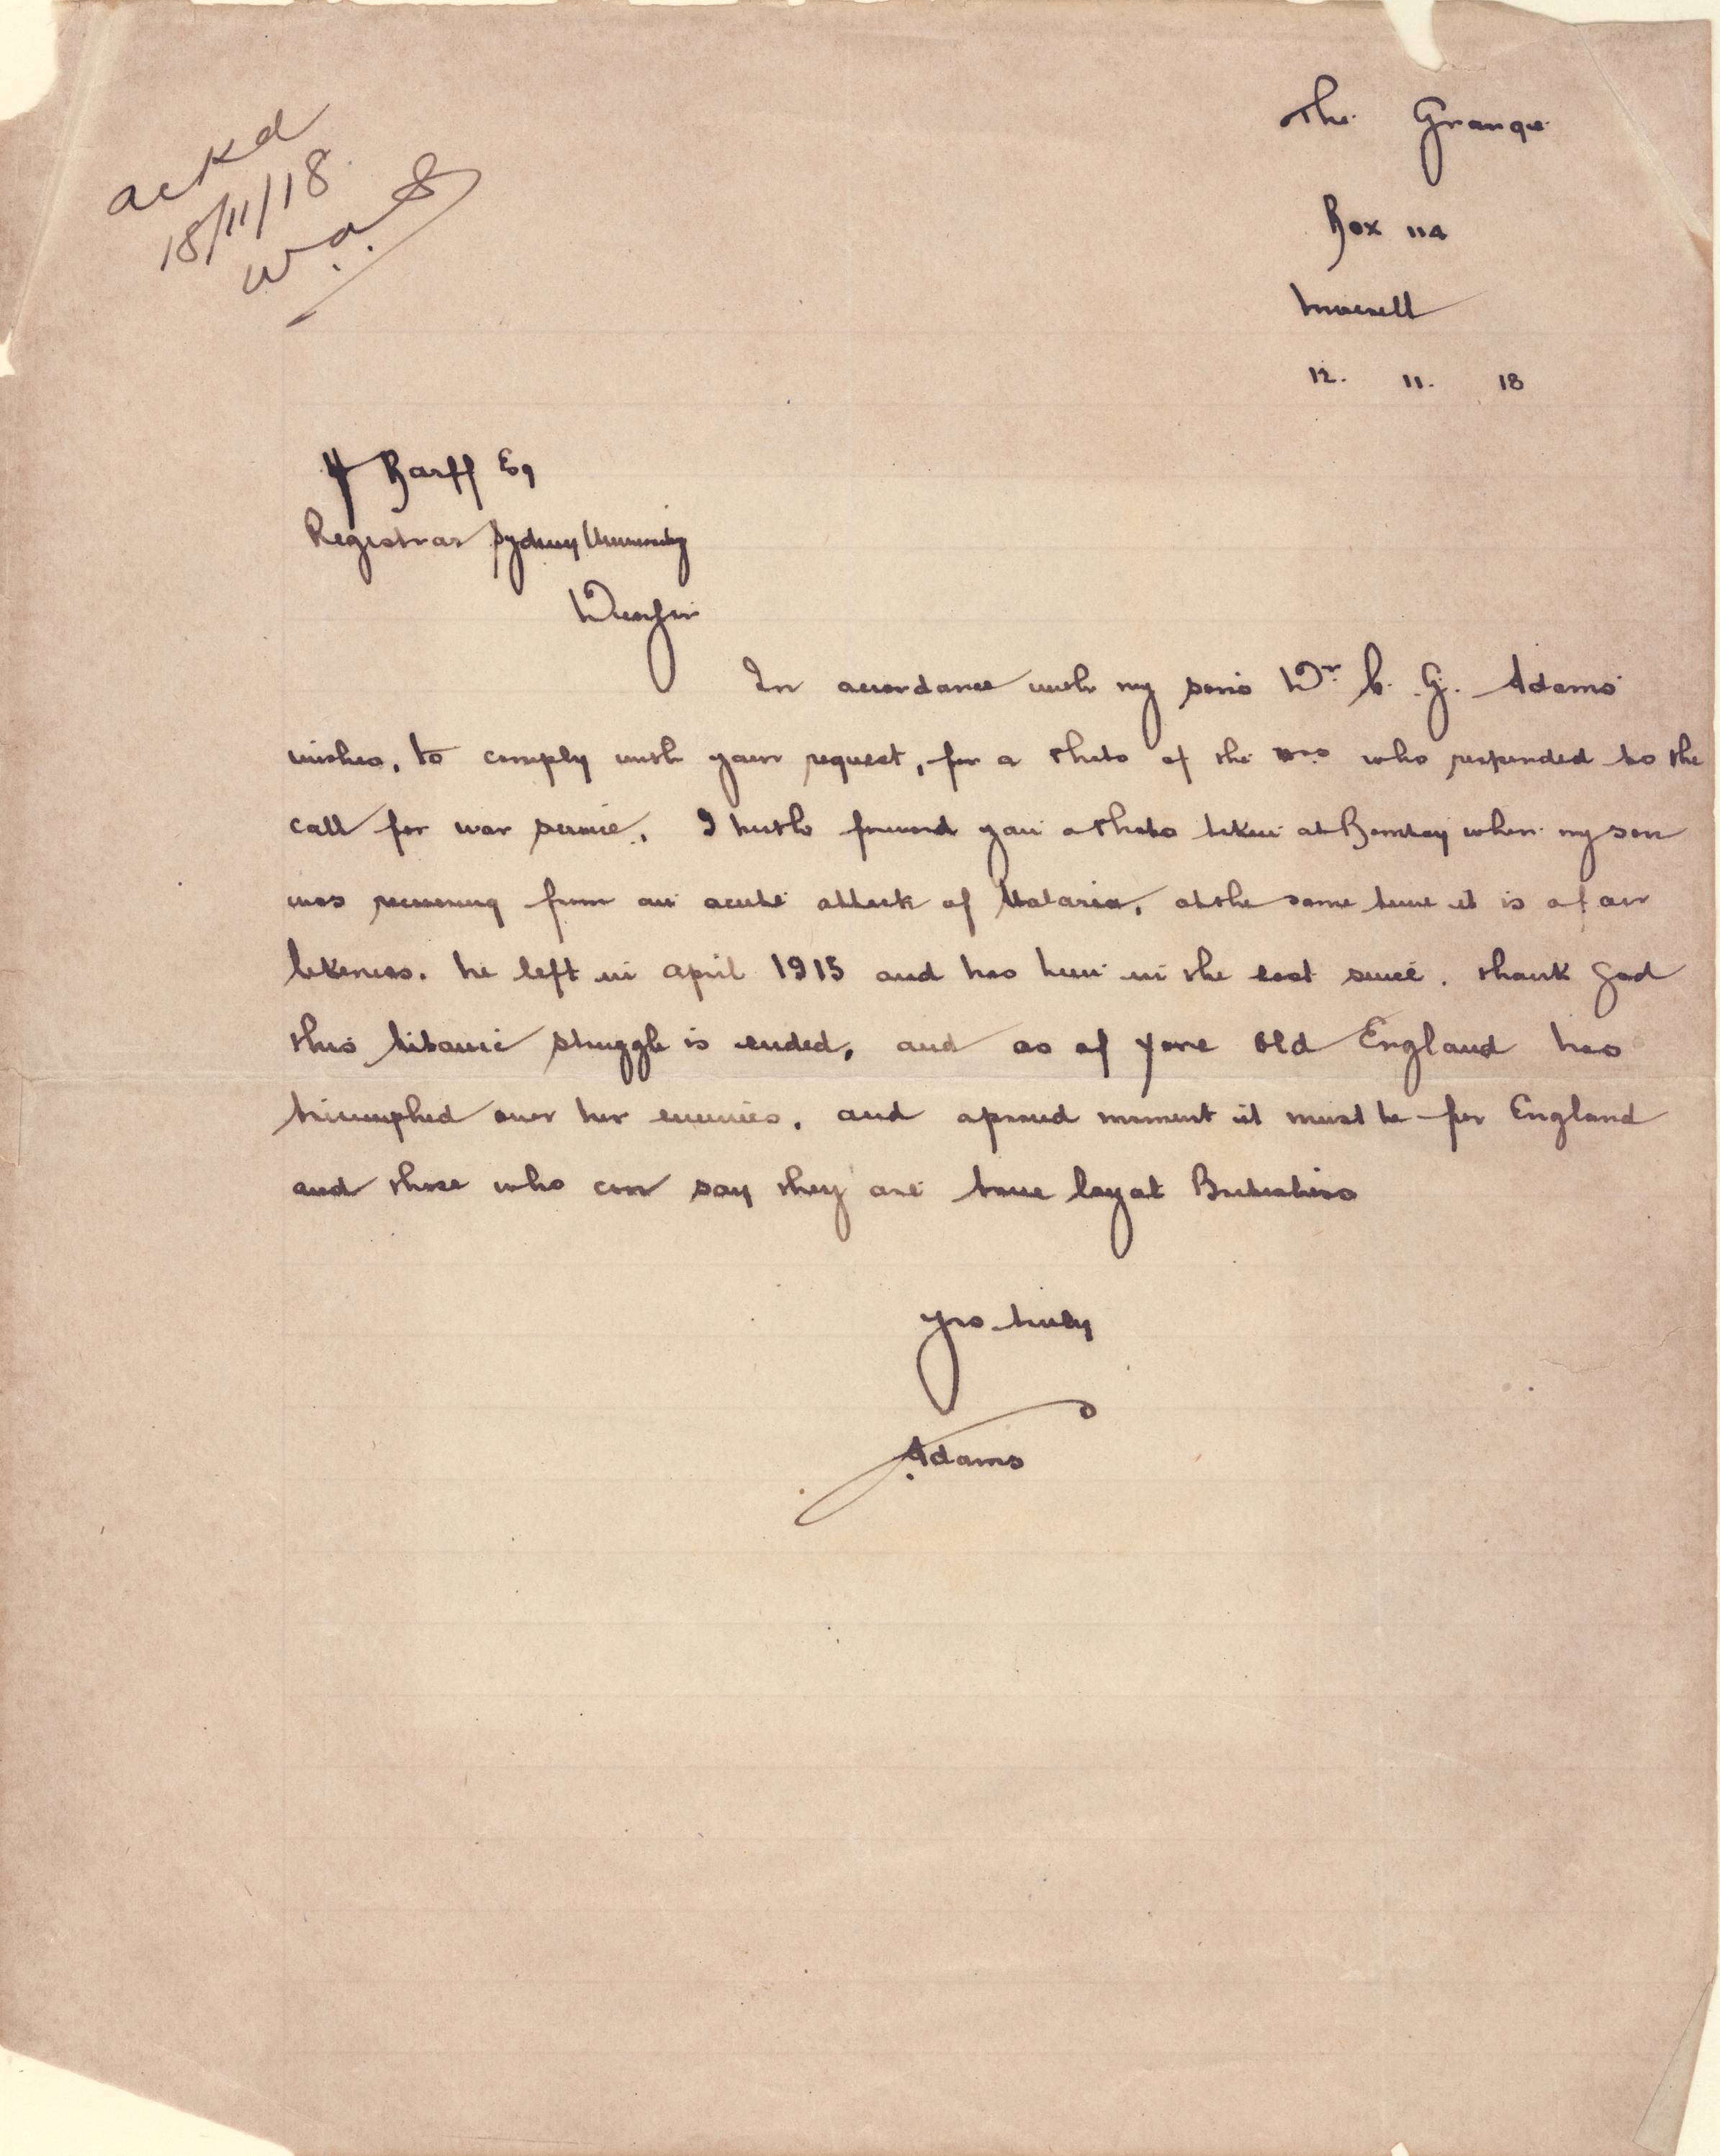 ackd
18/11/18
W.A.S
The Grange
Box 114
Inverell
12. 11. 18
H Barff Esq
Registrar Sydney University
Dear Sir
In accordance with my sons Dr. C. G. Adams
wishes, to comply with your request, for a Photo of the who responded to the
call for war service, I herewith forward you a Photo taken at Bombay when my son
was recovering from an acute attack of Malaria, at the same time it is a fair
likeness. he left in april 1915 and has been in the east since. thank God
this titanic struggle is ended, and as of yore Old England has
triumphed over her enemies, and a proud moment it must be for England
and those who can say they are true loyal
yrs truly
Adams